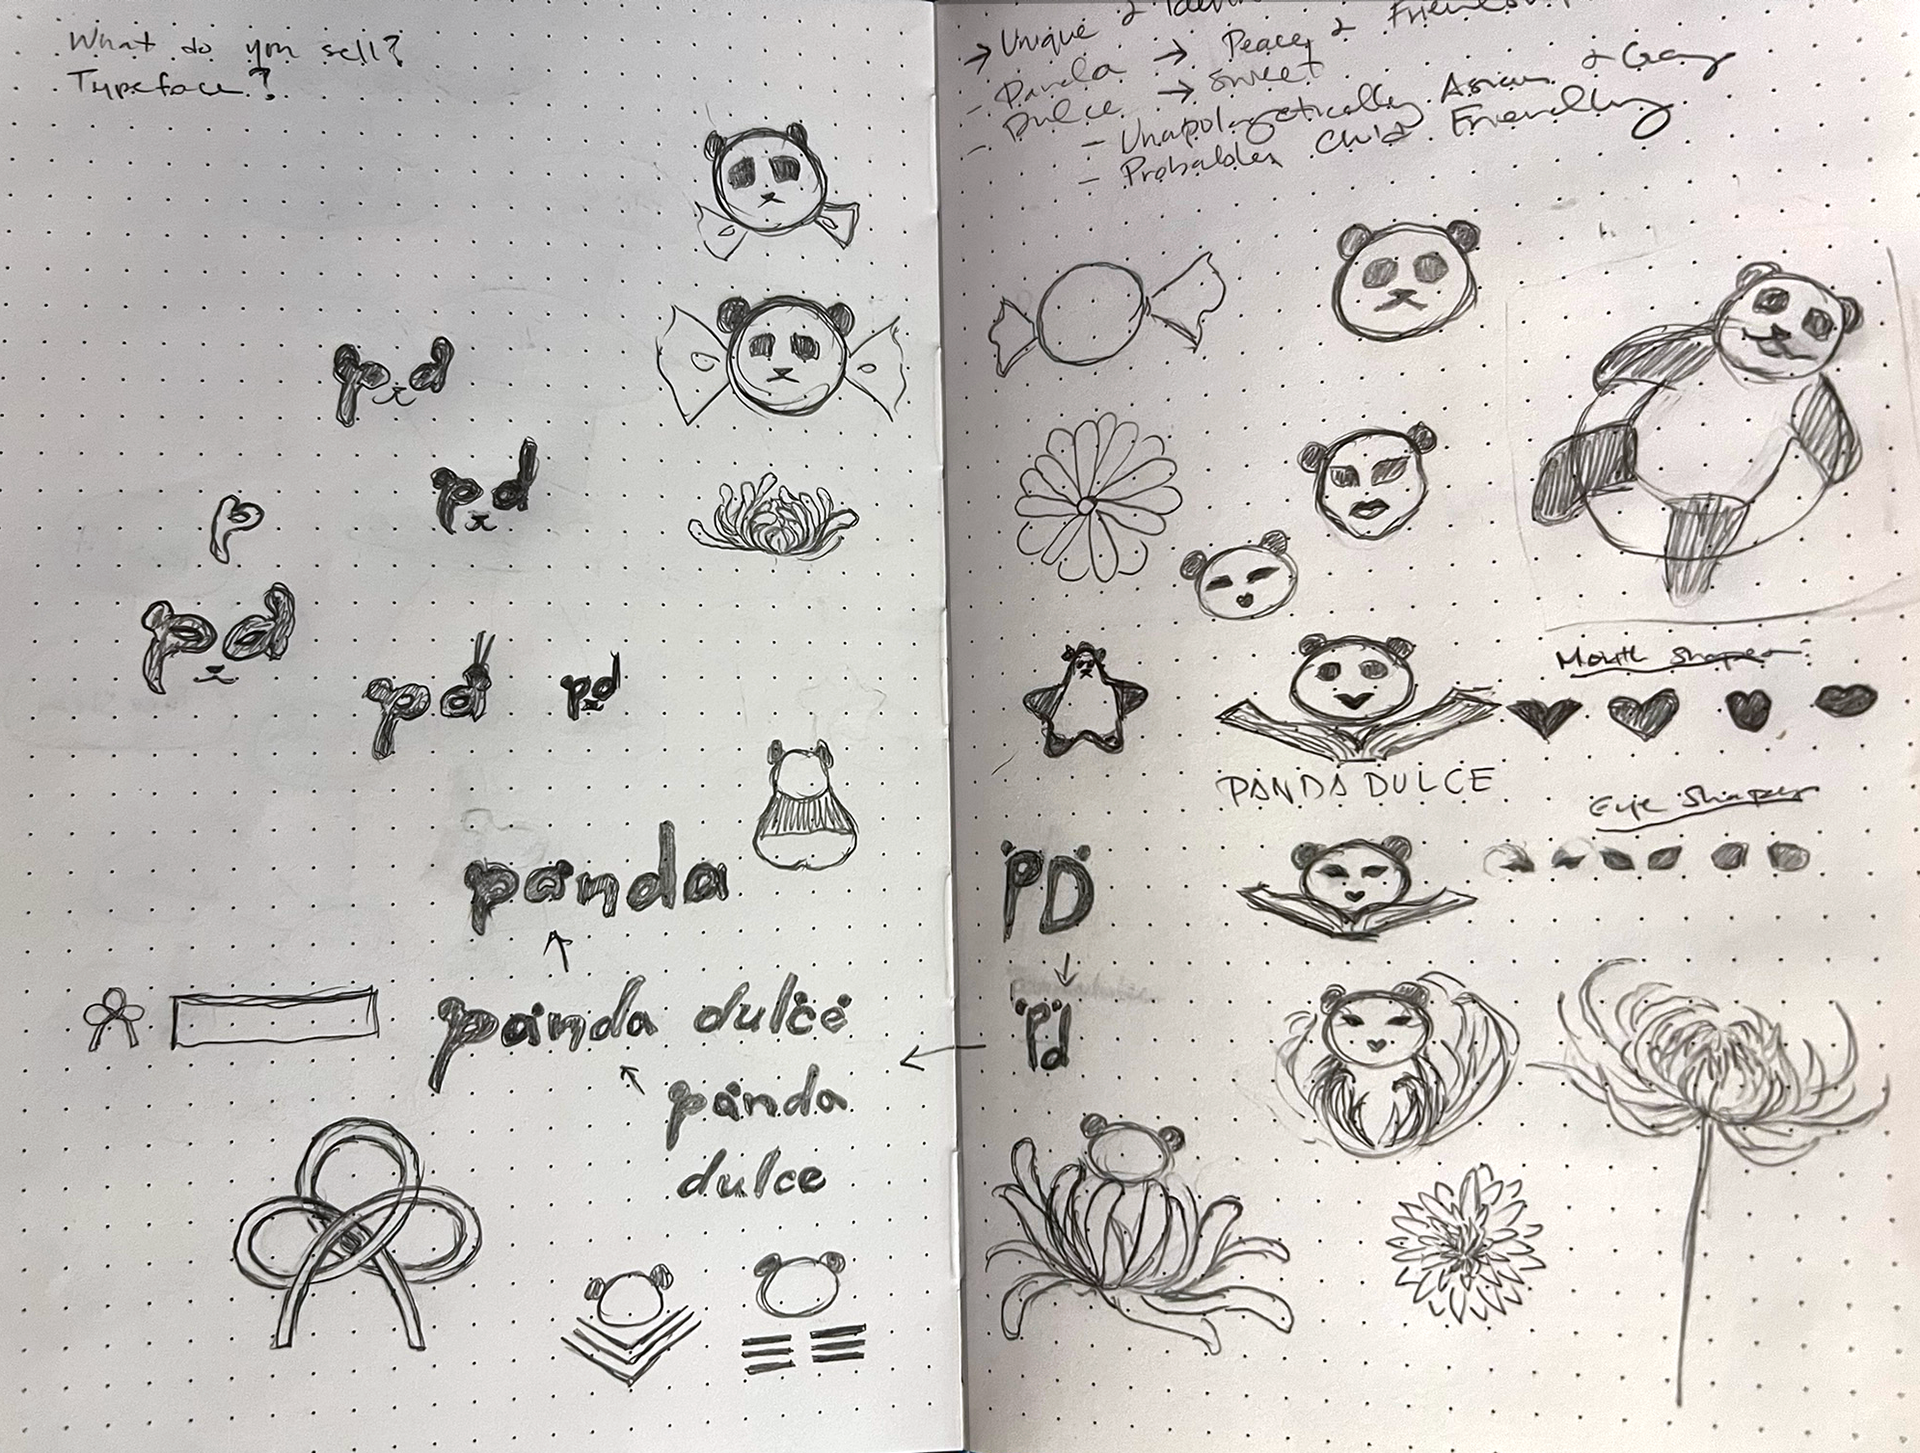 What do you sell?
Typeface?
p d
p d
p
p d
p d
pd
panda
panda dulce
panda
dulce
→ Unique &
- Panda → Peace &
- Dulce → Sweet
- Unapologetically Asian & Gay
- Probably Child Friendly
Mouth Shapes:
PANDA DULCE
Eye Shapes
PD
Pd